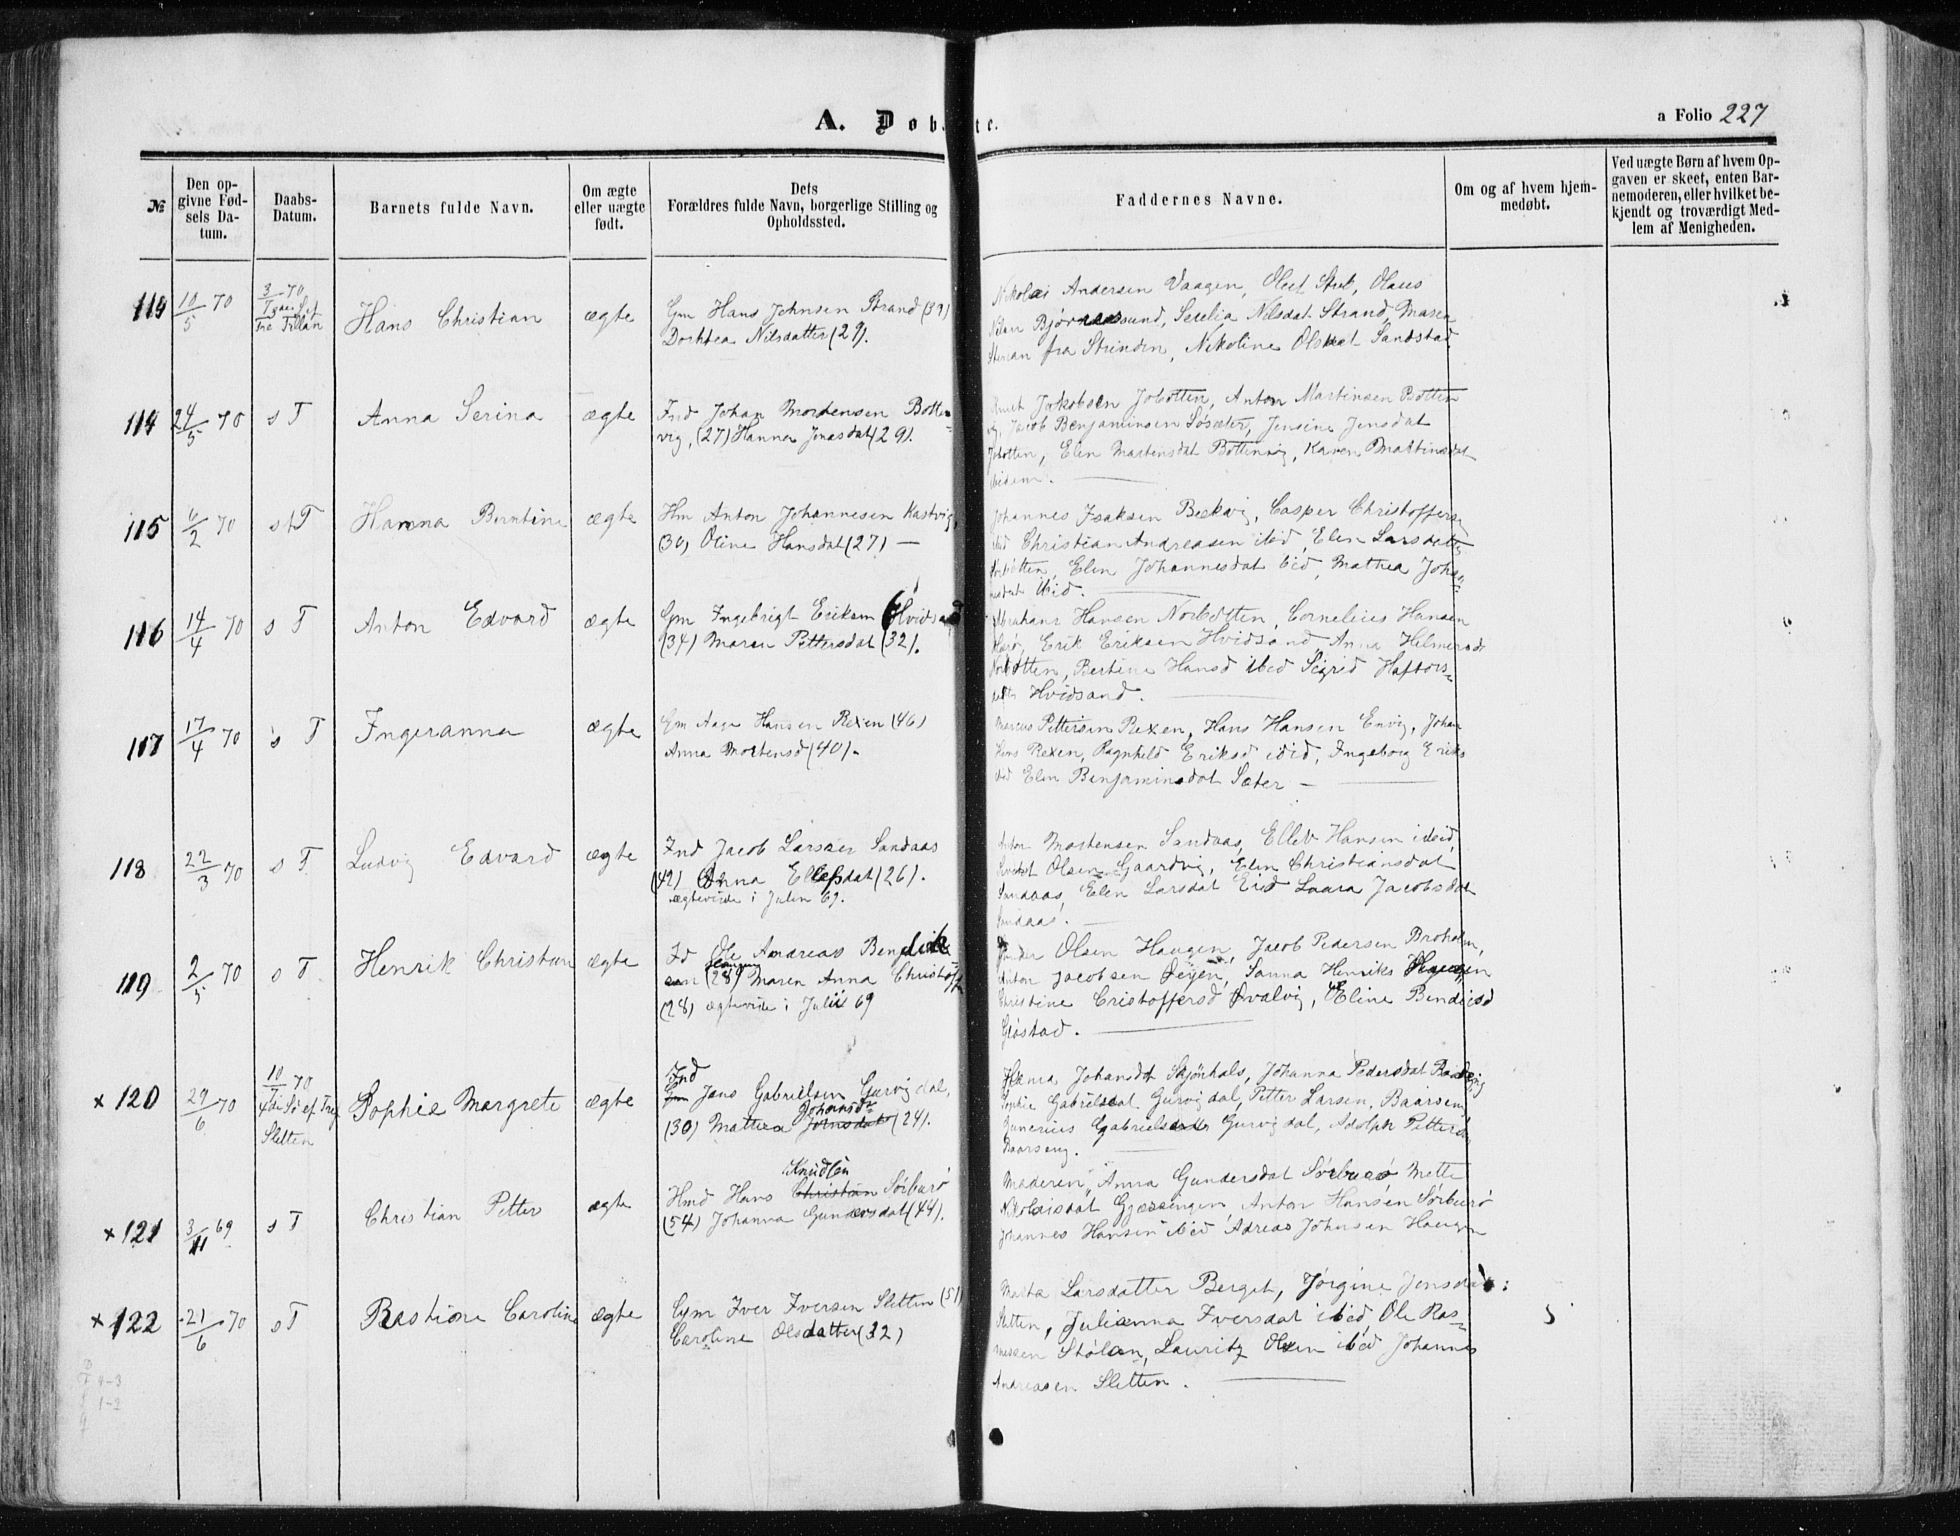 A. Døb te.
a Folio 227
№
Den op-
givne Fød-
sels Da-
tum.
Daabs-
Datum.
Barnets fulde Navn.
Om ægte
eller uægte
født.
Dets
Forældres fulde Navn, borgerlige Stilling og
Opholdssted.
Faddernes Navne.
Om og af hvem hjem-
medøbt.
Ved uægte Børn af hvem Op-
gaven er skeet, enten Bar-
nemoderen, eller hvilket be-
kjendt og troværdigt Med-
lem af Menigheden.
10/5 70
3/7 70
Hans Christian
ægte
Gm Hans Johnsen Strand (39)
Dorthea Nilsdatter (29).
Nikolai Andersen Vaagen, Olet Stub, Olaus
Strand, Maren
fra Strinden, Nikoline Olsdat Sandstad
114
24/5 70
s T
Anna Serina
ægte
Ind Johan Mortensen Botten-
vig, (27) Hanna Jonasdat (29).
Jakobsen Jobotten, Anton Martinsen Botten
Jacob Benjaminsen Søsæter, Jensine Jensdat
Jobotten, Elen Martensdat Bottenvig, Karen Martinsdat
ibidem.
115
6/2 70
s T
Hanna Berntine
ægte
Hm Anton Johannesen Kastvig,
(30) Oline Hansdat (27) —
Johannes Isaksen Bekvig, Casper Christoffers
ibid Christian Andreasen ibid, Elen Larsdatt
Elen Johannesdat ibid, Mathea Johan
nesdat ibid.
116
14/4 70
s T
Anton Edvard
ægte
Gm Ingebrigt Eriksen Hvidsand
(34) Maren Pettersdat (32).
Abraham Hansen Norbotten, Cornelius Hansen
Erik Eriksen Hvidsand Anna Helmersd
Norbotten, Bertine Hansd ibid Sigrid Haftors-
datt Hvidsand.
117
17/4 70
s T
Ingeranna
ægte
Gm Aage Hansen Rexen (46)
Anna Mortensd (40).
Marcus Pettersen Rexen, Hans Hansen Envig, Johan
Hans Rexen, Ragnhild Eriksd ibid, Ingeborg Eriks
ibid Elen Benjaminsdat Sæter —
118
22/3 70
s T
Ludvig Edvard
ægte
Ind Jacob Larsen Sandaas
(42) Anna Ellefsdat (26).
ægteviede i Julen 69.
Anton Mortensen Sandaas, Ellev Hansen ibid,
Olsen Gaardvig, Elen Christiansdat
Sandaas, Elen Larsdat Eid Laura Jacobsdat
Sandaas.
119
2/5 70
s T
Henrik Christian
ægte
Id Ole Andreas Bendik-
sen Haugen (28) Maren Anna Christoff
(28) ægteviede i Julii 69
Peder Olsen Haugen, Jacob Pedersen Broholm,
Anton Jacobsen Øyen, Sanna Henriks Haugen
Christine Cristoffersd Kvalvig, Eline Bendiksd
Gjøstad.
× 120
29/6 70
10/7 70
4de S ef Tre
Sletten
Sophie Margrete
ægte
Ind
Gm Jans Gabrielsen Gurvigdal,
Johansd
(30) Mathea Jornsdat (24).
Hanna Johansdt Skjønhals, Johanna Pedersdat
Sophie Gabrielsdat Gurvigdal, Petter Larsen, Baarseng
Gunerius Gabrielsen Gurvigdal, Adolph Petters
Baarseng.
× 121
3/11 69
s T
Christian Petter
ægte
Knudsen
Hmd Hans Christian Sörburö
(54) Johanna Gundersdat (44).
Moderen, Anna Gundersdat Sörburö Mette
Nikolaisdat Gjæssingen, Anton Hansen Sörburö
Johannes Hansen ibid Adreas Johnsen Haugen
× 122
21/6 70
s T
Bastiane Caroline
ægte
Gm Iver Iversen Sletten (51)
Caroline Olsdatter (32)
Marta Larsdatter Berget, Jørgine Jensdat:
Sletten, Julianna Iversdat ibid, Ole Ras-
mussen Stølan, Lauritz Olsen ibid Johannes
Andreasen Sletten.
4-3
1-2